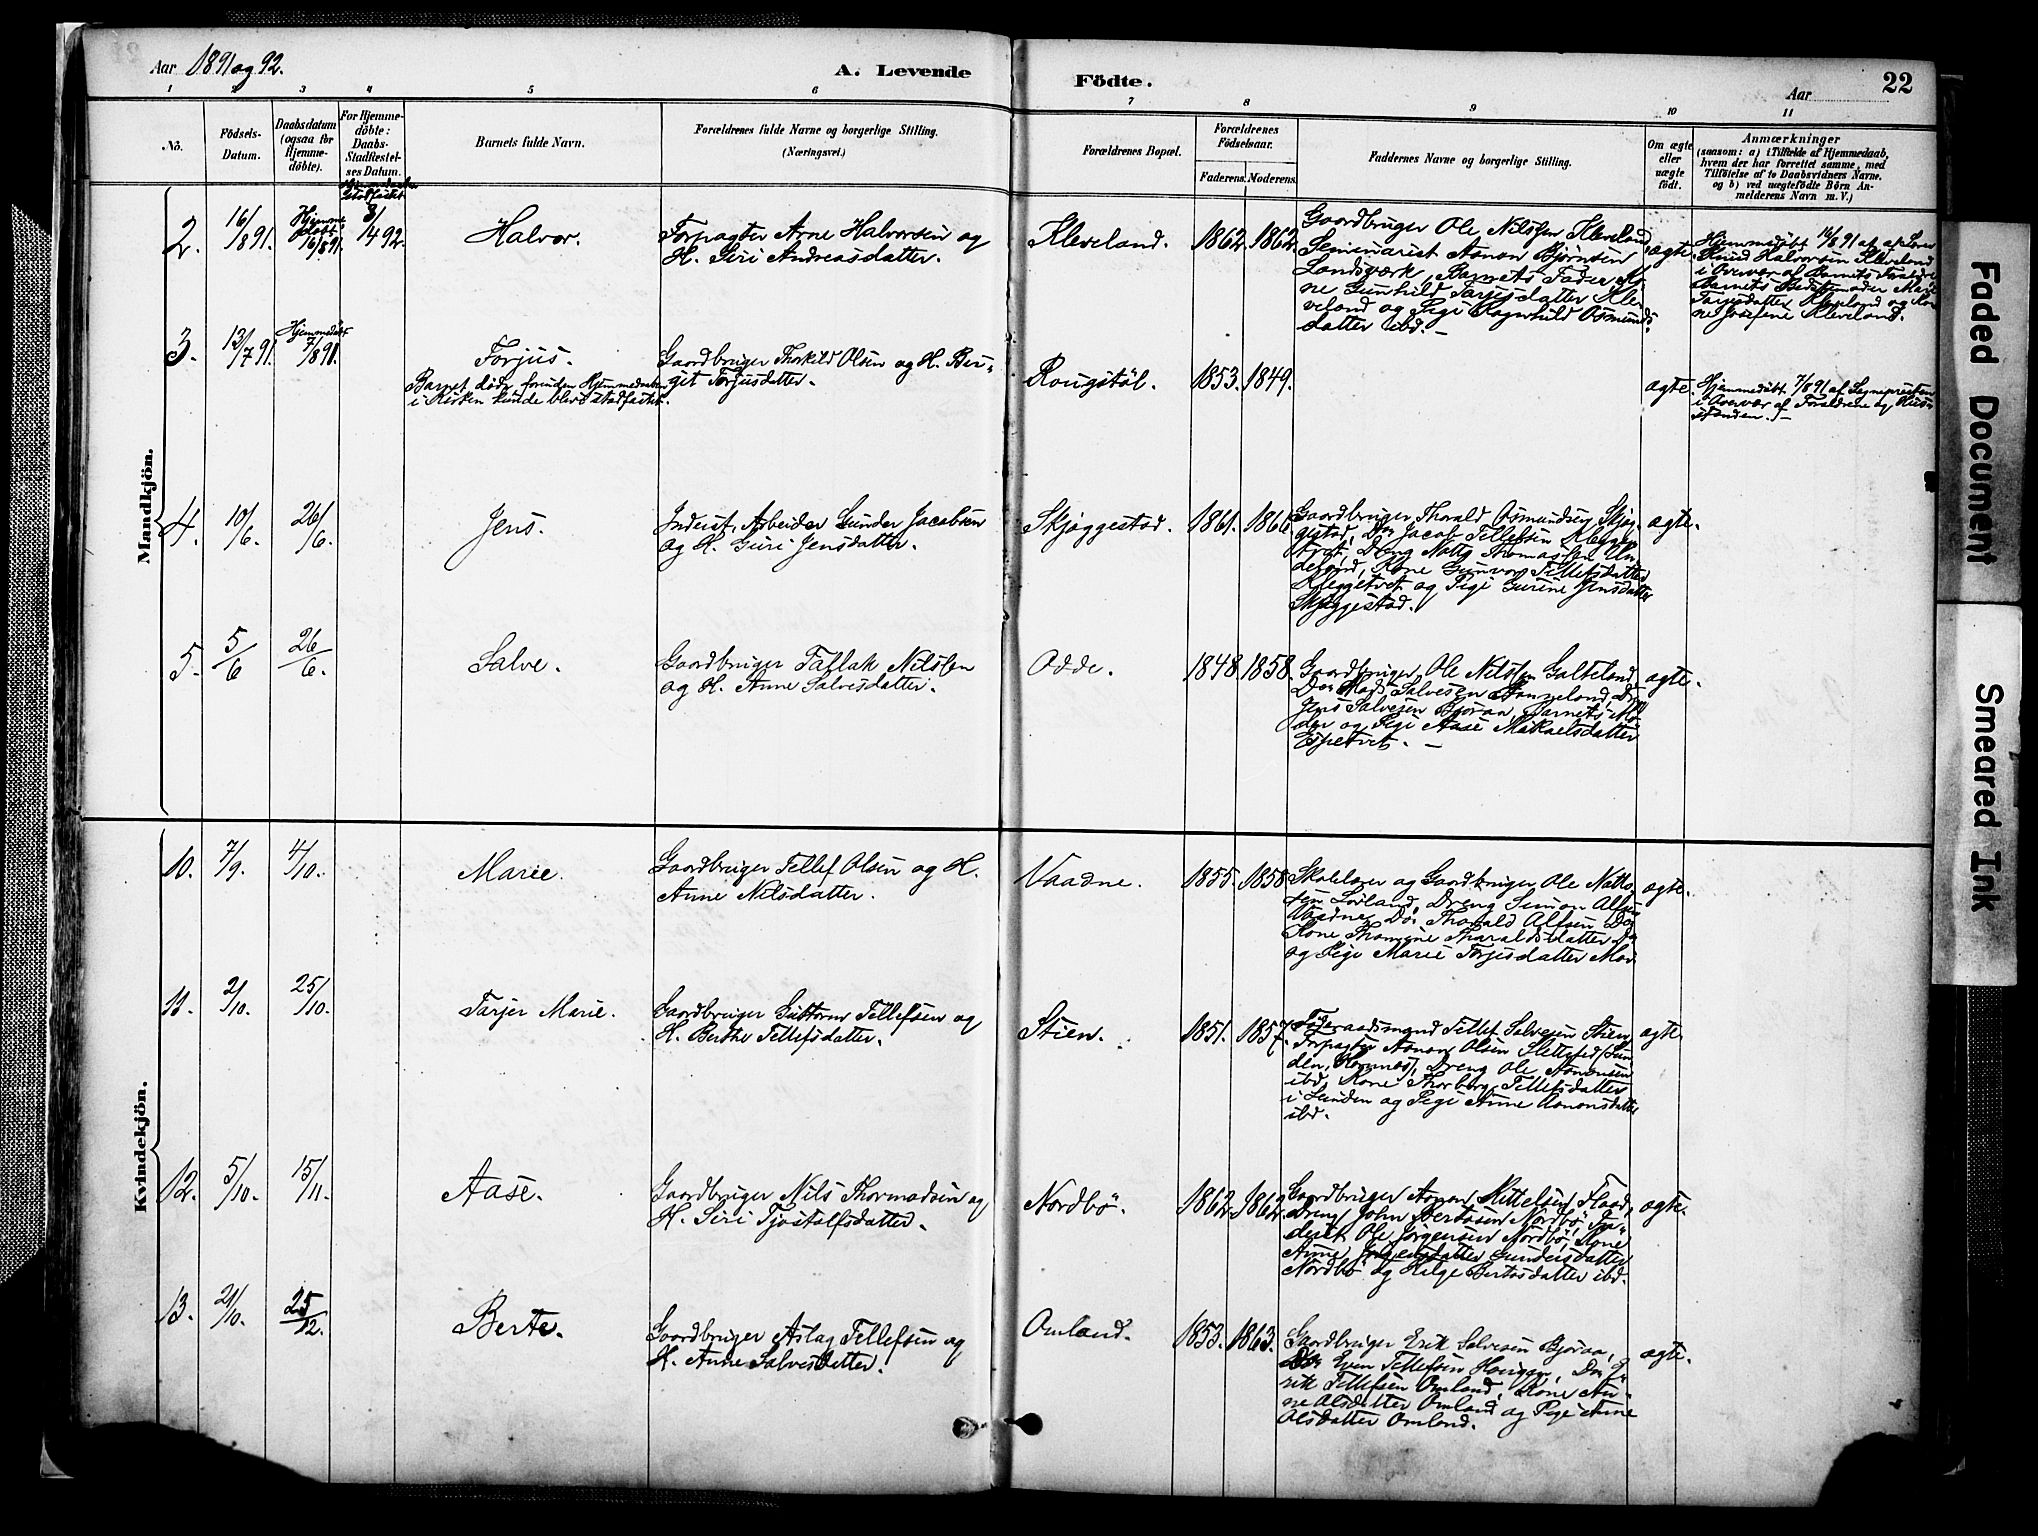 Aar 1891 og 92.
A. Levende Födte.
Aar
22
1 2 3 4 5 6 7 8 9 10 11
No.
Födsels-
Datum.
Daabsdatum
(ogsaa for
Hjemme-
döbte).
For Hjemme-
döbte:
Daabs-
Stadfæstel-
ses Datum.
Barnets fulde Navn.
Forældrenes fulde Navne og borgerlige Stilling.
(Næringsvei.)
Forældrenes Bopæl.
Forældrenes
Födselsaar.
Faderens. Moderens.
Faddernes Navne og borgerlige Stilling.
Om ægte
eller
uægte
födt.
Anmærkninger
(saasom: a) i Tilfælde af Hjemmedaab,
hvem der har forrettet samme, med
Tilföielse af to Daabsvidners Navne,
og b) ved uægtefödte Börn An-
melderens Navn m. V.)
Mandkjön.
2.
16/8 91.
Hjemme
döbt
16/8 91.
3/4 92.
Halvor.
Forpagter Arne Halvorsen og
H. Siri Andreasdatter.
Kleveland.
1862. 1862.
Gaardbruger Ole Nilssen Kleveland
Seminarist Aanon Bjørnsen
Landsværk, Barnets Fader, Ko
ne Gunhild Tarjesdatter Kle-
veland og Pige Ragnhild Osmunds-
datter ibd. –
ægte.
Hjemmedöbt 16/8 91 af Lærer
Knud Halvorsen Kleveland
i Overvær af Barnets Forældre
Barnets Bedstemoder Marie
Tarjesdatter Kleveland og Ko-
ne Josefine Kleveland.
3.
13/7 91.
Hjemmedöbt
7/8 91.
Torjus.
Barnet døde, forinden Hjemmedaaben
i Kirken kunde blive stadfæstet.
Gaardbruger Thorkild Olsen og H. Ber-
git Torjusdatter.
Rougstöl.
1853. 1849.
ægte.
Hjemmedöbt 7/8 91 af Sognepresten
i Overvær af Forældrene og Hus-
standen. –
4.
10/6.
26/6.
Jens.
Indust. Arbeider Gunder Jacobsen
og H. Guri Jensdatter.
Skjæggestad.
1861. 1866.
Gaardbruger Tharald Osmundsen Skjæg-
gestad, Do Jacob Tellefsen Klegge-
tvet, Dreng Notto Thomassen Un-
deland, Kone Gunvor Tellefsdatter
Kleggetvet og Pige Gurine Jensdatter
Skjæggestad.
ægte.
5.
5/6
26/6.
Salve.
Gaardbruger Tallak Nilssen
og H. Anne Salvesdatter.
Odde.
1848 1858.
Gaardbruger Ole Nilssen Galteland
Do Mads Salvesen Honneland, Do
Jens Salvesen Bjoraa, Barnets Mo-
der og Pige Aase Mikaelsdatter
Espetvet. –
ægte.
Kvindekjön.
10.
7/9.
4/10.
Marie.
Gaardbruger Tellef Olsen og H.
Anne Nilsdatter.
Vaadne.
1855. 1858.
Skolelærer og Gaardbruger Ole Notto
sen Löiland, Dreng Simon Alfsen
Vaadne, Do Tharald Alfsen Do
Kone Thomine Tharaldsdatter Do
og Pige Marie Torjusdatter Mor
ægte.
11.
2/10.
25/10.
Tarjer Marie.
Gaardbruger Guttorm Tellefsen og
H. Berthe Tellefsdatter.
Stien.
1851. 1857.
Föderaadsmand Tellef Salvesen Stien,
Forpagter Aanon Olsen Slettefed (Sun-
den, Hornnes), Dreng Ole Aanonsen
ibd, Kone Thorborg Tellefsdatter
i Sunden og Pige Anne Aanonsdatter
ibd.
ægte.
12.
5/10.
15/11.
Aase.
Gaardbruger Nils Thormodsen og
H. Siri Tjöstolfsdatter.
Nordbö.
1862. 1862.
Gaardbruger Aanon Kittelsen Flaad,
Dreng John Bertosen Nordbö,
Ole Jörgensen Nordbö, Kone
Anne Jörgensdatter Gundersdatter
Nordbö og Helge Bertosdatter ibd.
ægte.
13.
21/10.
25/12.
Berte.
Gaardbruger Aslag Tellefsen og
H. Anne Salvesdatter.
Omland.
1853. 1863.
Gaardbruger Erik Salvesen Bjoraa,
Do Even Tellefsen Haugen, Do E-
rik Tellefsen Omland, Kone An-
ne Olsdatter Omland og Pige Anne
Olsdatter Omland.
ægte.
Faded Document
Smeared Ink